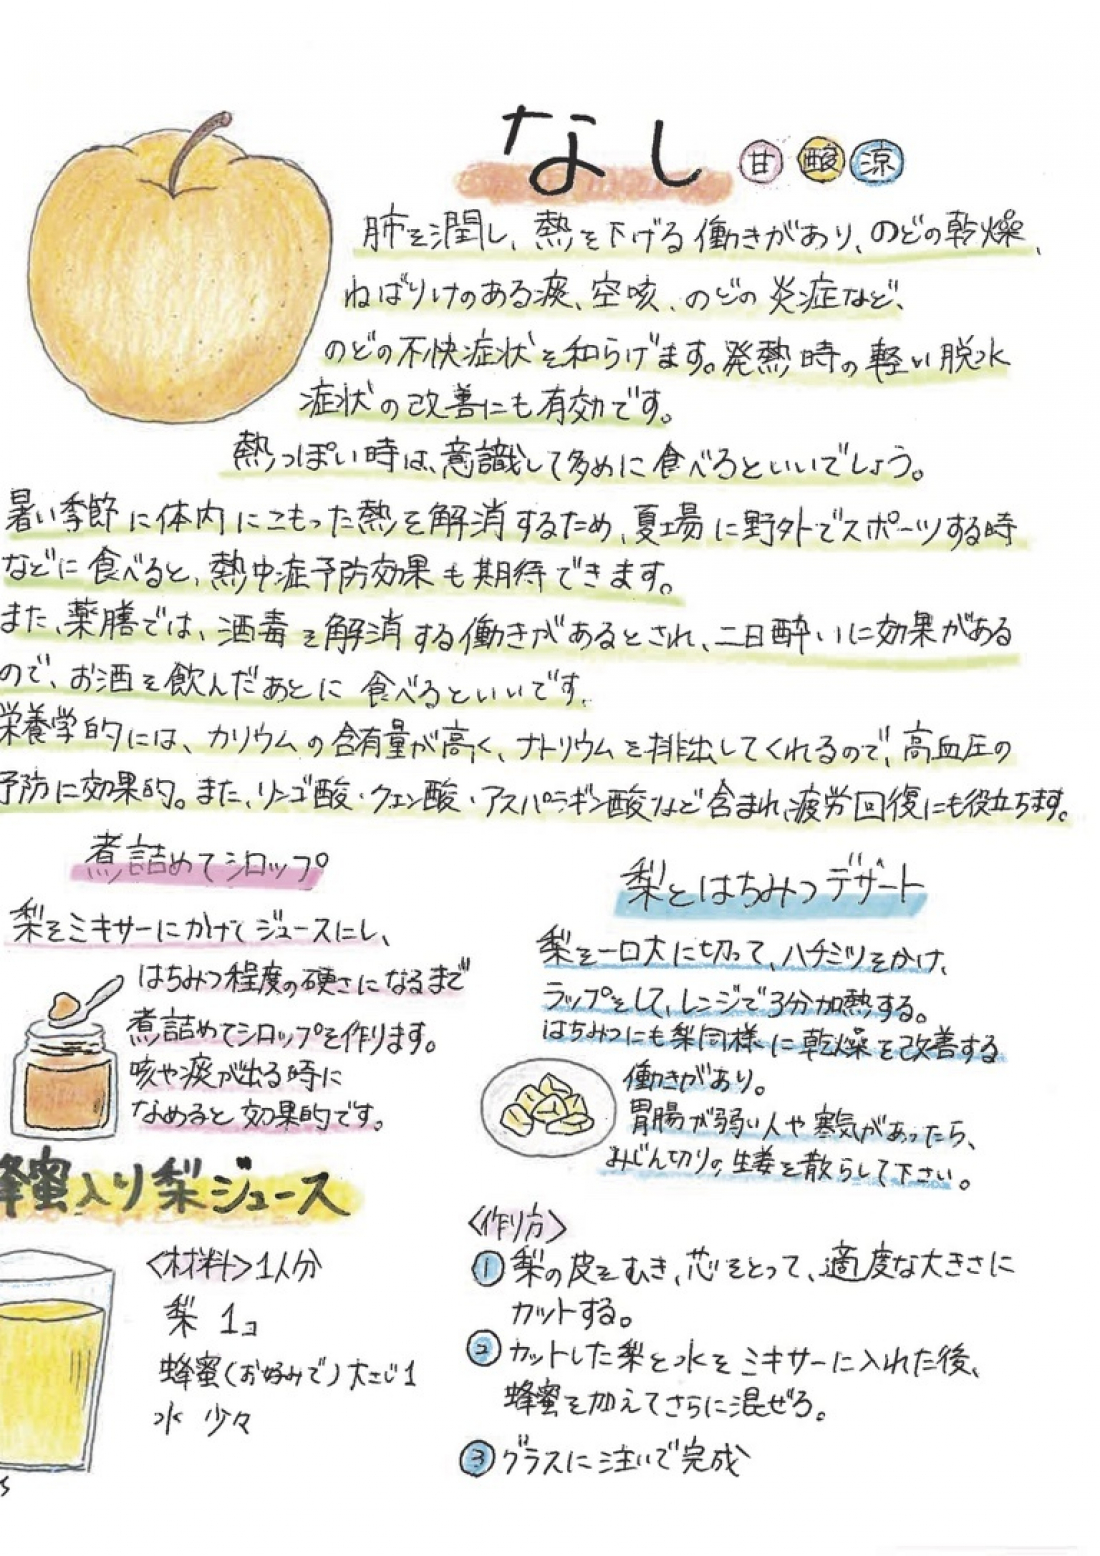 なし 甘 酸 涼
肺を潤し、熱を下げる働きがあり、のどの乾燥、
ねばりけのある痰、空咳、のどの炎症など、
のどの不快症状を和らげます。発熱時の軽い脱水
症状の改善にも有効です。
熱っぽい時は、意識して多めに食べるといいでしょう。
暑い季節に体内にこもった熱を解消するため、夏場に野外でスポーツする時
などに食べると、熱中症予防効果も期待できます。
また、薬膳では、酒毒を解消する働きがあるとされ、二日酔いに効果がある
ので、お酒を飲んだあとに食べるといいです。
栄養学的には、カリウムの含有量が高く、ナトリウムを排出してくれるので、高血圧の
予防に効果的。また、リンゴ酸・クエン酸・アスパラギン酸など含まれ、疲労回復にも役立ちます。
煮詰めてシロップ
梨をミキサーにかけてジュースにし、
はちみつ程度の硬さになるまで
煮詰めてシロップを作ります。
咳や痰が出る時に
なめると効果的です。
梨とはちみつデザート
梨を一口大に切って、ハチミツをかけ、
ラップをして、レンジで3分加熱する。
はちみつにも梨同様に乾燥を改善する
働きがあり。
胃腸が弱い人や寒気があったら、
みじん切りの生姜を散らして下さい。
蜂蜜入り梨ジュース
〈材料〉1人分
梨 1コ
蜂蜜(お好みで)大さじ1
水 少々
〈作り方〉
① 梨の皮をむき、芯をとって、適度な大きさに
カットする。
② カットした梨と水をミキサーに入れた後、
蜂蜜を加えてさらに混ぜる。
③ グラスに注いで完成